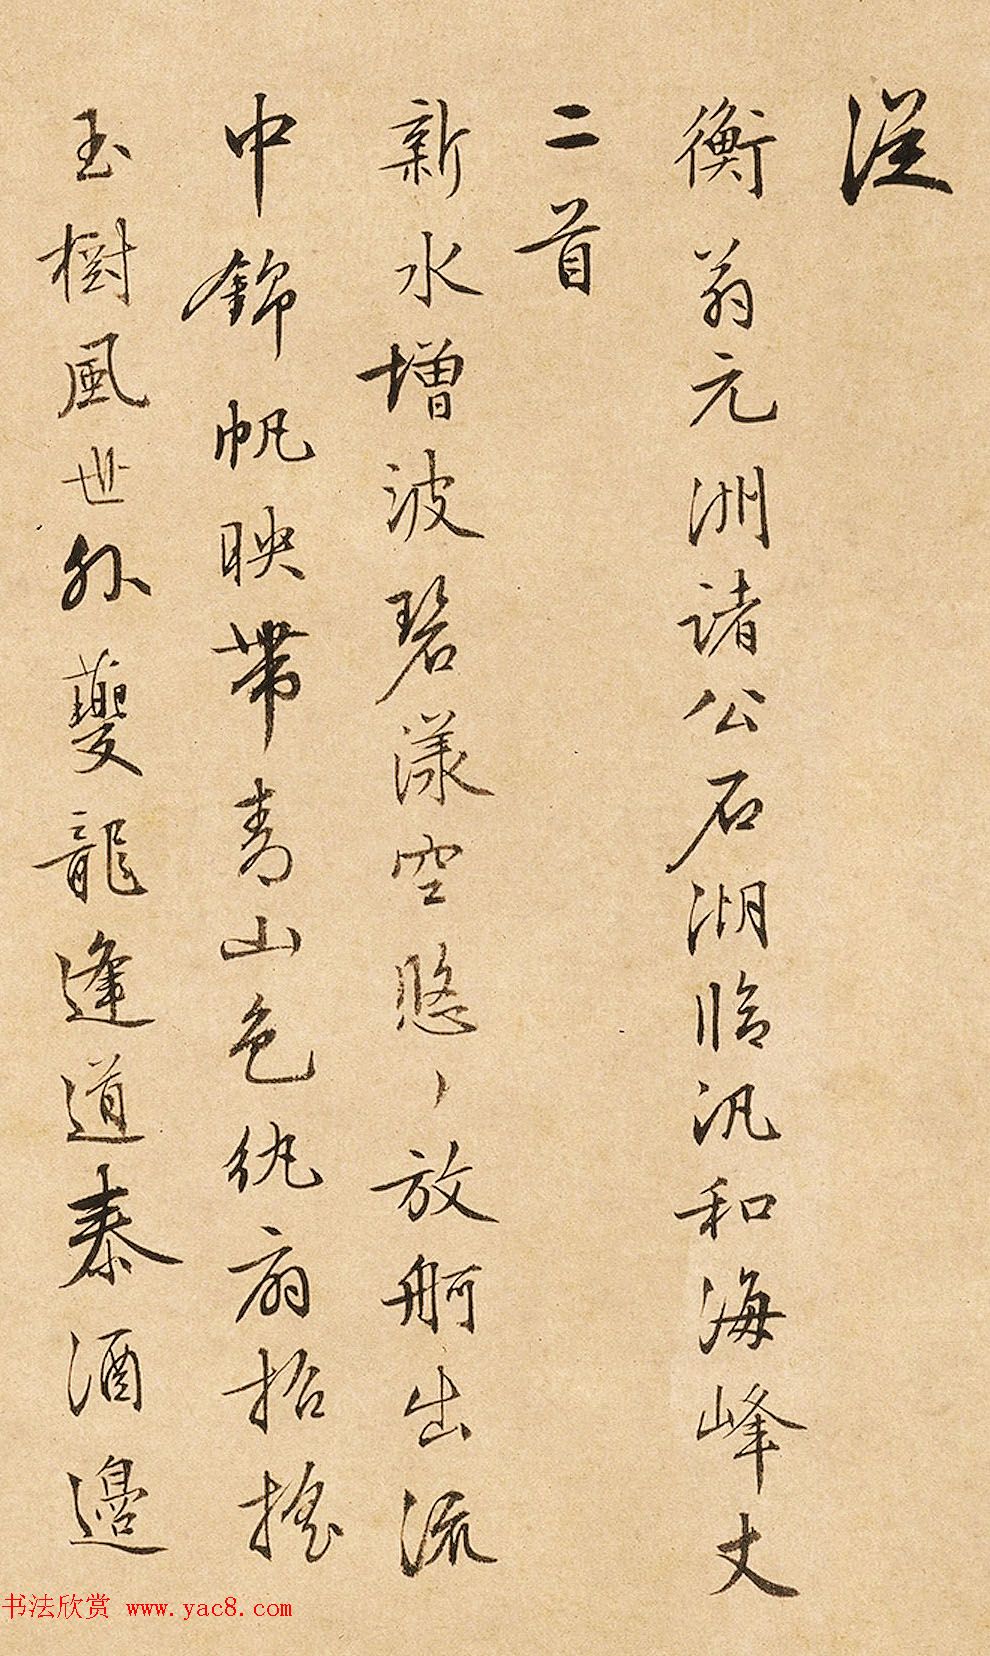 從
衡翁元洲諸公石湖臨汎和海峰丈
二首
新水增波碧漾空悠〻放舸出流
中錦帆映帶青山色紈扇招搖
玉樹風世外夔龍逢道泰酒邊
书法欣赏 www.yac8.com